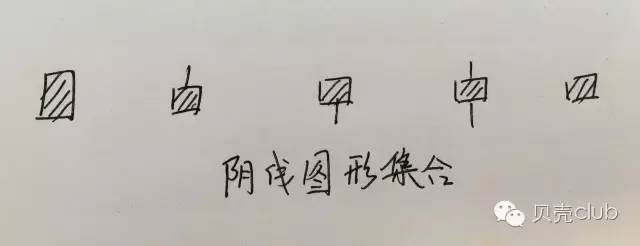 阴线图形集合
贝壳club